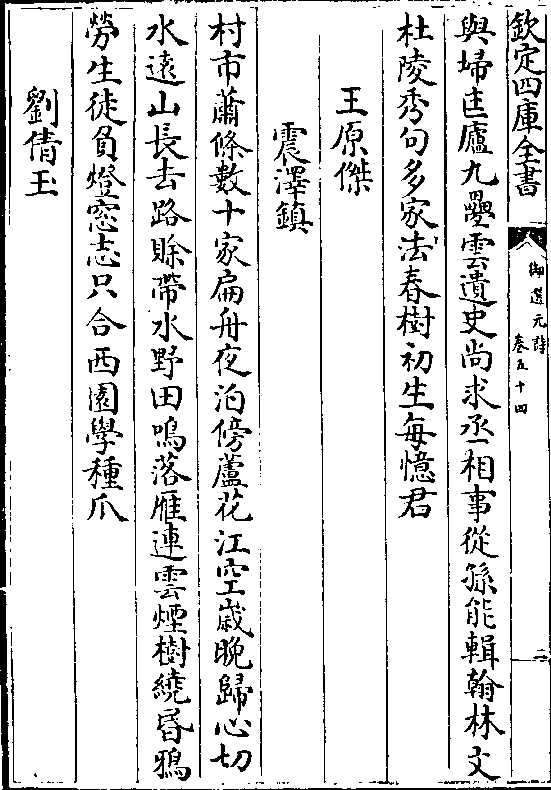 欽定四庫全書
御選元詩
卷五十四
二
與埽匡廬九疊雲遺史尚求丞相事從孫能輯翰林文
杜陵秀句多家法春樹初生每憶君
王原傑
震澤鎮
村市蕭條數十家扁舟夜泊傍蘆花江空歲晚歸心切
水遠山長去路賒帶水野田鳴落雁連雲煙樹繞昏鴉
勞生徒負燈窓志只合西園學種瓜
劉倩玉